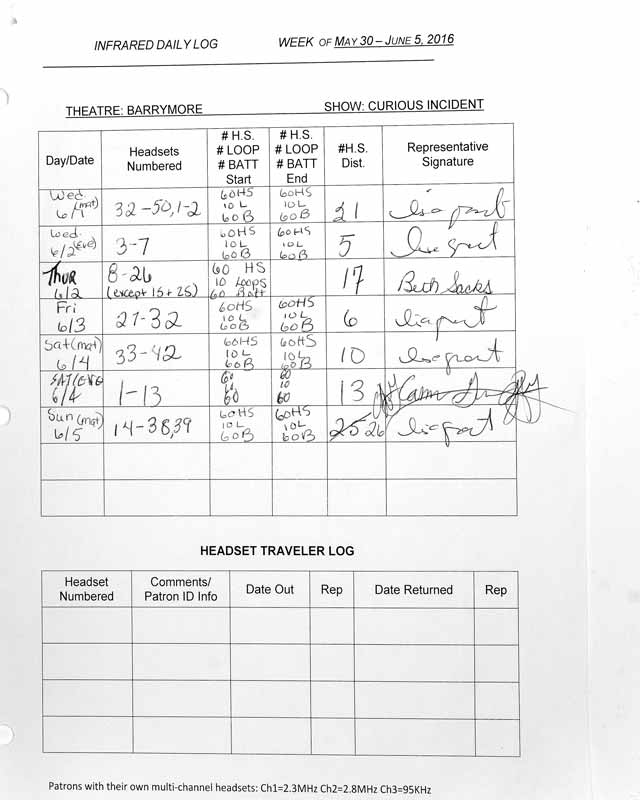 INFRARED DAILY LOG WEEK OF MAY 30 – JUNE 5, 2016
THEATRE: BARRYMORE SHOW: CURIOUS INCIDENT
Day/Date Headsets Numbered # H.S. # LOOP # BATT Start # H.S. # LOOP # BATT End #H.S. Dist. Representative Signature
Wed. (mat) 6/1 32-50, 1-2 60HS 10L 60B 60HS 10L 60B 21
Wed. 6/2 (Eve) 3-7 60HS 10L 60B 60HS 10L 60B 5
THUR 6/2 8-26 (except 15+25) 60 HS 10 Loops 60 Batt 17 Beth Sacks
Fri 6/3 27-32 60HS 10L 60B 60HS 10L 60B 6
Sat (mat) 6/4 33-42 60HS 10L 60B 60HS 10L 60B 10
SAT/EVE 6/4 1-13 60 60 60 10 60 13
Sun (mat) 6/5 14-38,39 60HS 10L 60B 60HS 10L 60B 25 26
HEADSET TRAVELER LOG
Headset Numbered Comments/ Patron ID Info Date Out Rep Date Returned Rep
Patrons with their own multi-channel headsets: Ch1=2.3MHz Ch2=2.8MHz Ch3=95KHz